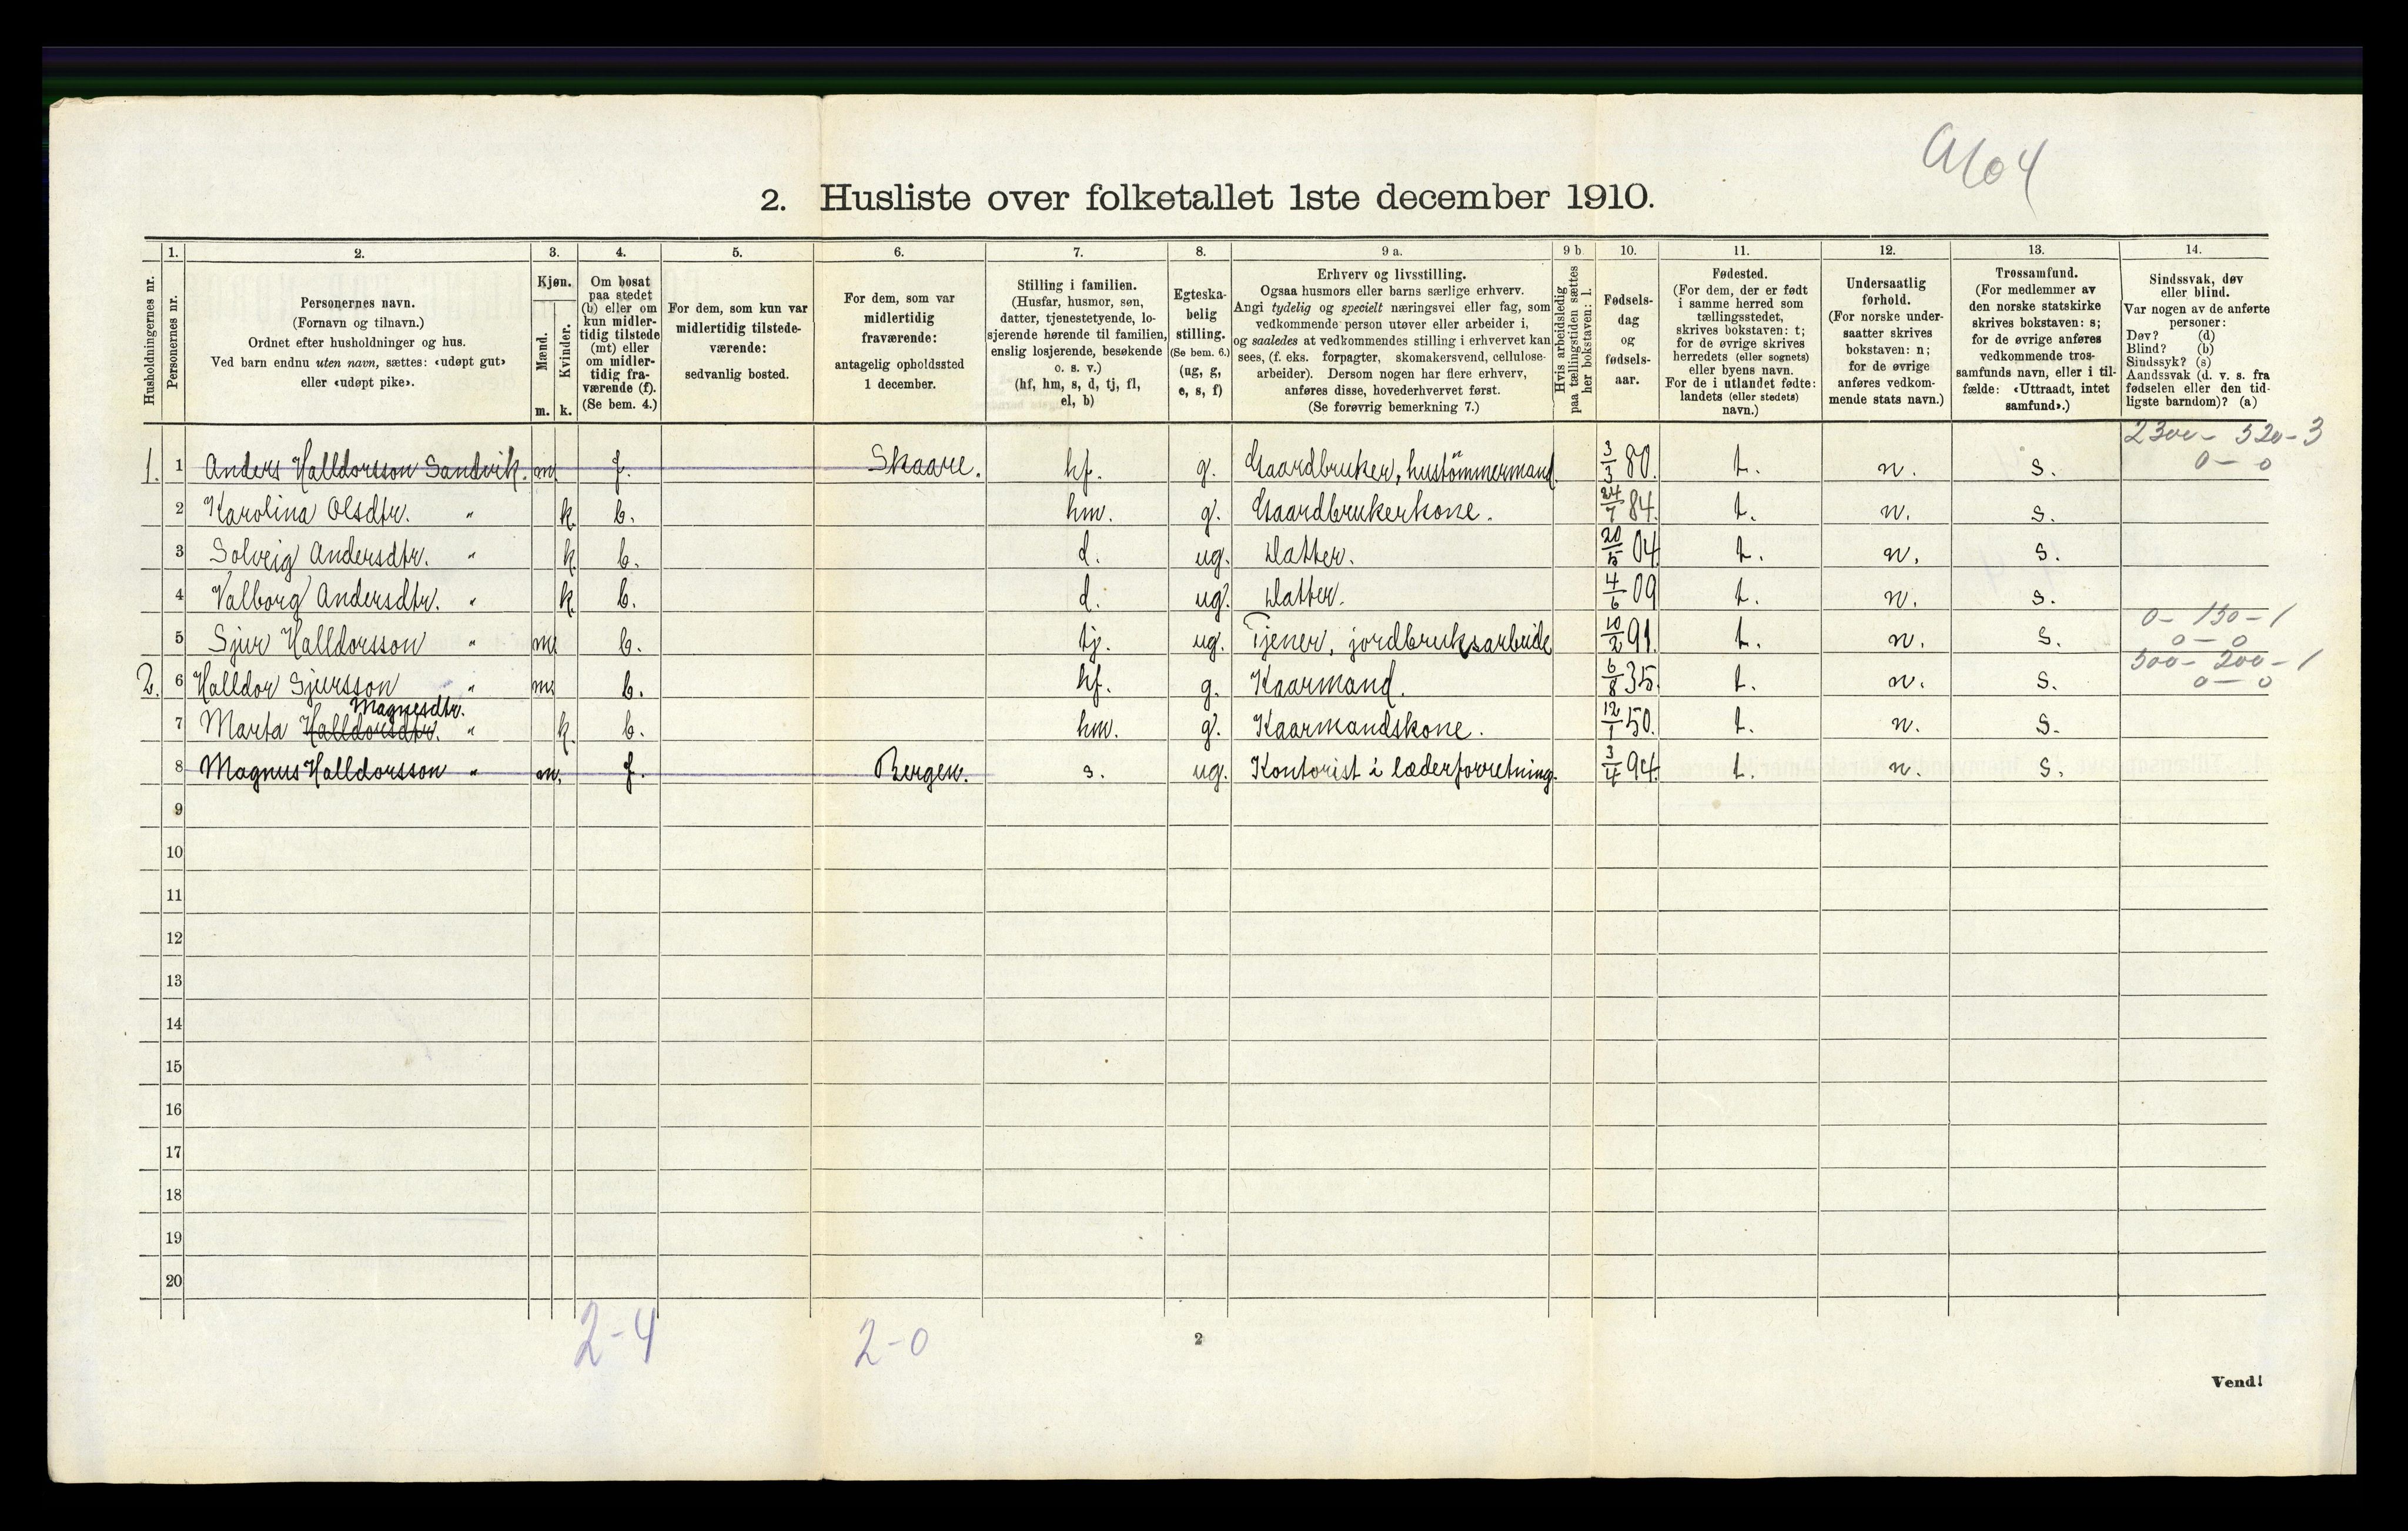 a104
2. Husliste over folketallet 1ste december 1910.
Husholdningernes nr.
1.
Personernes nr.
2.
Personernes navn.
(Fornavn og tilnavn.)
Ordnet efter husholdninger og hus.
Ved barn endnu uten navn, sættes: «udøpt gut»
eller «udøpt pike».
3.
Kjøn.
Mænd.
m.
Kvinder.
k.
4.
Om bosat
paa stedet
(b) eller om
kun midler-
tidig tilstede
(mt) eller
om midler-
tidig fra-
værende (f).
(Se bem. 4.)
5.
For dem, som kun var
midlertidig tilstede-
værende:
sedvanlig bosted.
6.
For dem, som var
midlertidig
fraværende:
antagelig opholdssted
1 december.
7.
Stilling i familien.
(Husfar, husmor, søn,
datter, tjenestetyende, lo-
sjerende hørende til familien,
enslig losjerende, besøkende
o. s. v.)
(hf, hm, s, d, tj, fl,
el, b)
8.
Egteska-
belig
stilling.
(Se bem. 6.)
(ug, g,
e, s, f)
9 a.
Erhverv og livsstilling.
Ogsaa husmors eller barns særlige erhverv.
Angi tydelig og specielt næringsvei eller fag, som
vedkommende person utøver eller arbeider i,
og saaledes at vedkommendes stilling i erhvervet kan
sees, (f. eks. forpagter, skomakersvend, cellulose-
arbeider). Dersom nogen har flere erhverv,
anføres disse, hovederhvervet først.
(Se forøvrig bemerkning 7.)
9 b.
Hvis arbeidsledig
paa tællingstiden sættes
her bokstaven: l.
10.
Fødsels-
dag
og
fødsels-
aar.
11.
Fødested.
(For dem, der er født
i samme herred som
tællingsstedet,
skrives bokstaven: t;
for de øvrige skrives
herredets (eller sognets)
eller byens navn.
For de i utlandet fødte:
landets (eller stedets)
navn.)
12.
Undersaatlig
forhold.
(For norske under-
saatter skrives
bokstaven: n;
for de øvrige
anføres vedkom-
mende stats navn.)
13.
Trossamfund.
(For medlemmer av
den norske statskirke
skrives bokstaven: s;
for de øvrige anføres
vedkommende tros-
samfunds navn, eller i til-
fælde: «Uttraadt, intet
samfund».)
14.
Sindssvak, døv
eller blind.
Var nogen av de anførte
personer:
Døv? (d)
Blind? (b)
Sindssyk? (s)
Aandssvak (d. v. s. fra
fødselen eller den tid-
ligste barndom)? (a)
2300 - 520 - 3
1. 1 Anders Halldorsson Sandvik. m. f. Skaare. hf. g. Gaardbruker, hustömmermand. 3/3 80. t. n. s. 0 - 0
2 Karolina Olsdtr. " k. b. hm. g. Gaardbrukerkone. 24/7 84. t. n. s.
3 Solveig Andersdtr. " k. b. d. ug. Datter. 20/5 04. t. n. s.
4 Valborg Andersdtr. " k. b. d. ug. Datter. 4/6 09 t. n. s.
0 - 150 - 1
5 Sjur Halldorsson " m. b. tj. ug. Tjener, jordbruksarbeide 10/2 91. t. n. s. 0 - 0
500 - 200 - 1
2. 6 Halldor Sjursson " m. b. hf. g. Kaarmand. 6/8 35. t. n. s. 0 - 0
Magnesdtr.
7 Marta Halldorsdtr. " k. b. hm. g. Kaarmandskone. 12/1 50. t. n. s.
8 Magnus Halldorsson " m. f. Bergen. s. ug. Kontorist i læderforretning. 3/4 94. t. n. s.
9
10
11
12
13
14
15
16
17
18
19
20
2-4 2-0
2
Vend!